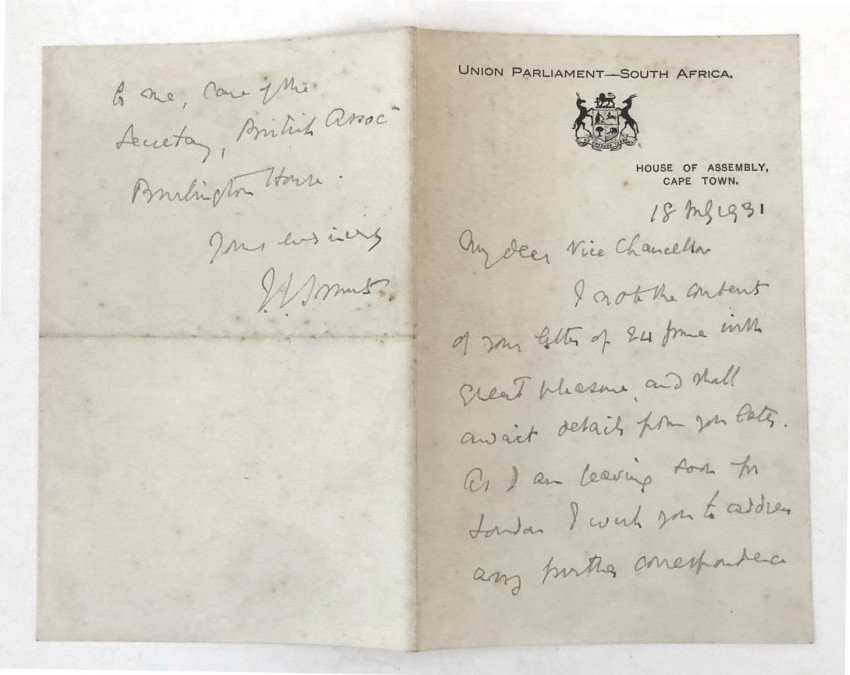 UNION PARLIAMENT—SOUTH AFRICA.
HOUSE OF ASSEMBLY,
CAPE TOWN.
18 July 1931
My dear Vice Chancellor
I note the contents
of your letter of 24 June with
great pleasure, and shall
await details from you later.
As I am leaving soon for
London I wish you to address
any further correspondence
to me, care of the
Secretary, British Assocⁿ
Burlington House.
Yours ever sincerely
J.C. Smuts.